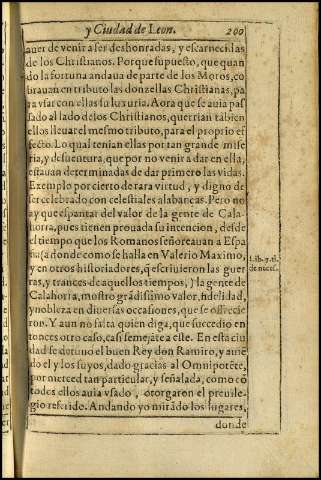 y Ciudad de Leon. 200
auer de venir a ser deshonradas, y escarnecidas
de los Christianos. Porque supuesto, que quan
do la fortuna andaua de parte de los Moros, co
brauan en tributo las donzellas Christianas, pa
ra vsar con ellas su luxuria. Aora que se auia pas
sado al lado delos Christianos, querrian tãbien
ellos lleuar el mesmo tributo, para el proprio ef
fecto. Lo qual tenian ellas por tan grande mise
ria, y desuentura, que por no venir a dar en ella,
estauan determinadas de dar primero las vidas.
Exemplo por cierto de rara virtud, y digno de
ser celebrado con celestiales alabanças. Pero no
ay que espantar del valor de la gente de Cala-
horra, pues tienen prouada su intencion, desde
el tiempo que los Romanos señoreauan a Espa
ña (a donde como se halla en Valerio Maximo,
y en otros historiadores, q̃ escriuieron las guer
ras, y trances de aquellos tiempos,) la gente de
Calahorra, mostro grãdissimo valor, fidelidad,
y nobleza en diuersas occasiones, que se offrecie
ron. Y aun no falta quien diga, que succedio en
tonces otro caso, casi semejãte a este. En esta ciu
dad se detuuo el buen Rey don Ramiro, y auiẽ
do el y los suyos, dado gracias al Omnipotẽte,
por merced tan particular, y señalada, como cõ
todos ellos auia vsado, otorgaron el preuile-
gio referido. Andando yo mirãdo los lugares,
donde
Lib. 7. ti.
de neces.